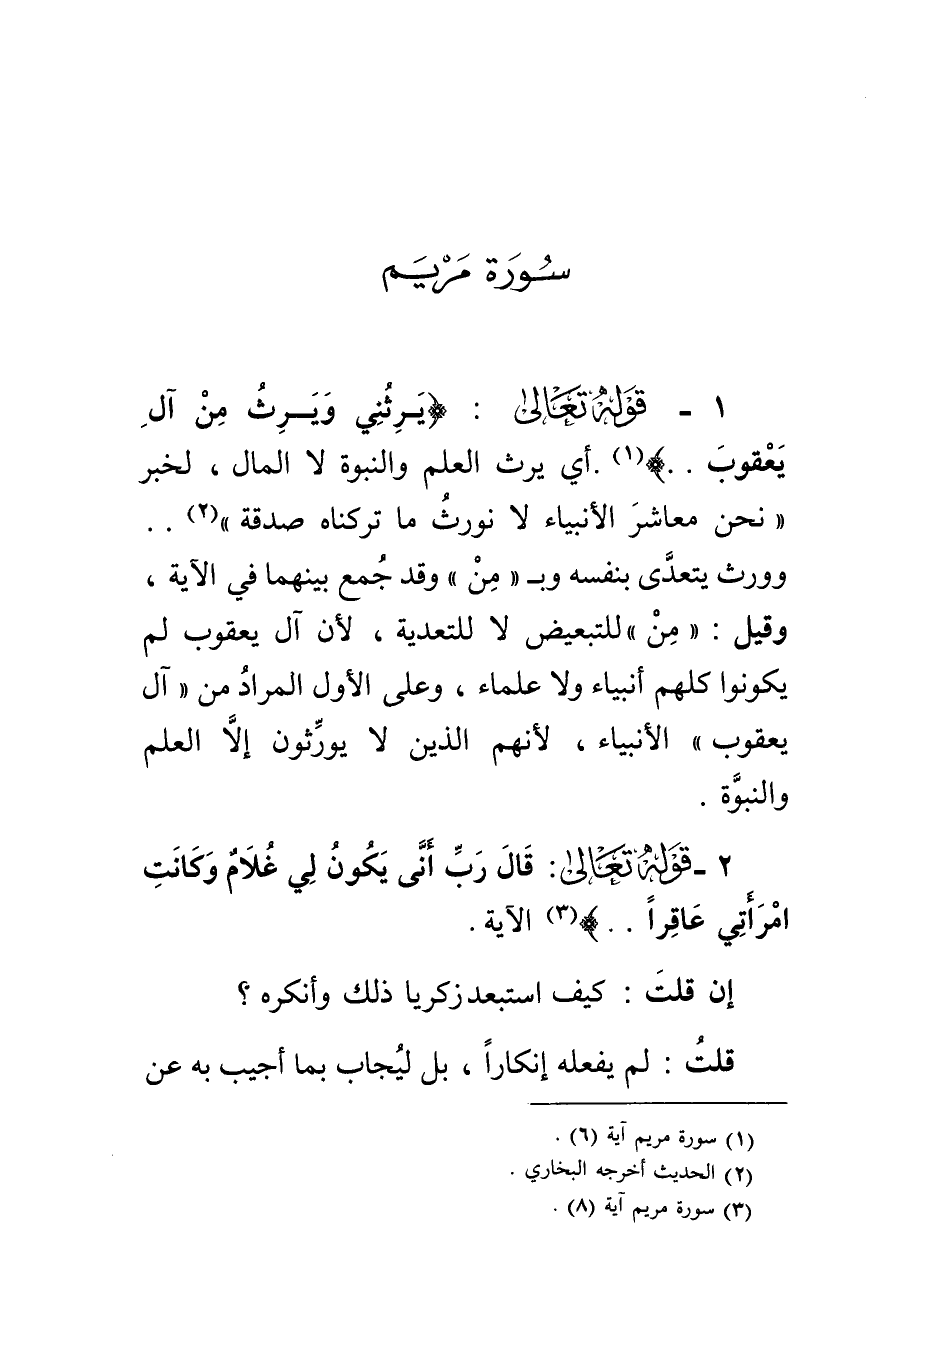 سُورَة مَرْيَم
١ - قَوْلُهُ تَعَالَىٰ : ﴿يَرِثُنِي وَيَرِثُ مِنْ آلِ
يَعْقُوبَ . .﴾(١) .أي يرث العلم والنبوة لا المال ، لخبر
« نحن معاشرَ الأنبياء لا نورثُ ما تركناه صدقة »(٢) . .
وورث يتعدَّى بنفسه وبـ « مِنْ » وقد جُمع بينهما في الآية ،
وقيل : « مِنْ »للتبعيض لا للتعدية ، لأن آل يعقوب لم
يكونوا كلهم أنبياء ولا علماء ، وعلى الأول المرادُ من « آل
يعقوب » الأنبياء ، لأنهم الذين لا يورِّثون إلَّا العلم
والنبوَّة .
٢ -قَوْلُهُ تَعَالَىٰ: قَالَ رَبِّ أَنَّى يَكُونُ لِي غُلَامٌ وَكَانَتِ
امْرَأَتِي عَاقِراً . .﴾(٣) الآية .
إن قلتَ : كيف استبعد زكريا ذلك وأنكره ؟
قلتُ : لم يفعله إنكاراً ، بل ليُجاب بما أجيب به عن
(١) سورة مريم آية (٦) .
(٢) الحديث أخرجه البخاري .
(٣) سورة مريم آية (٨) .